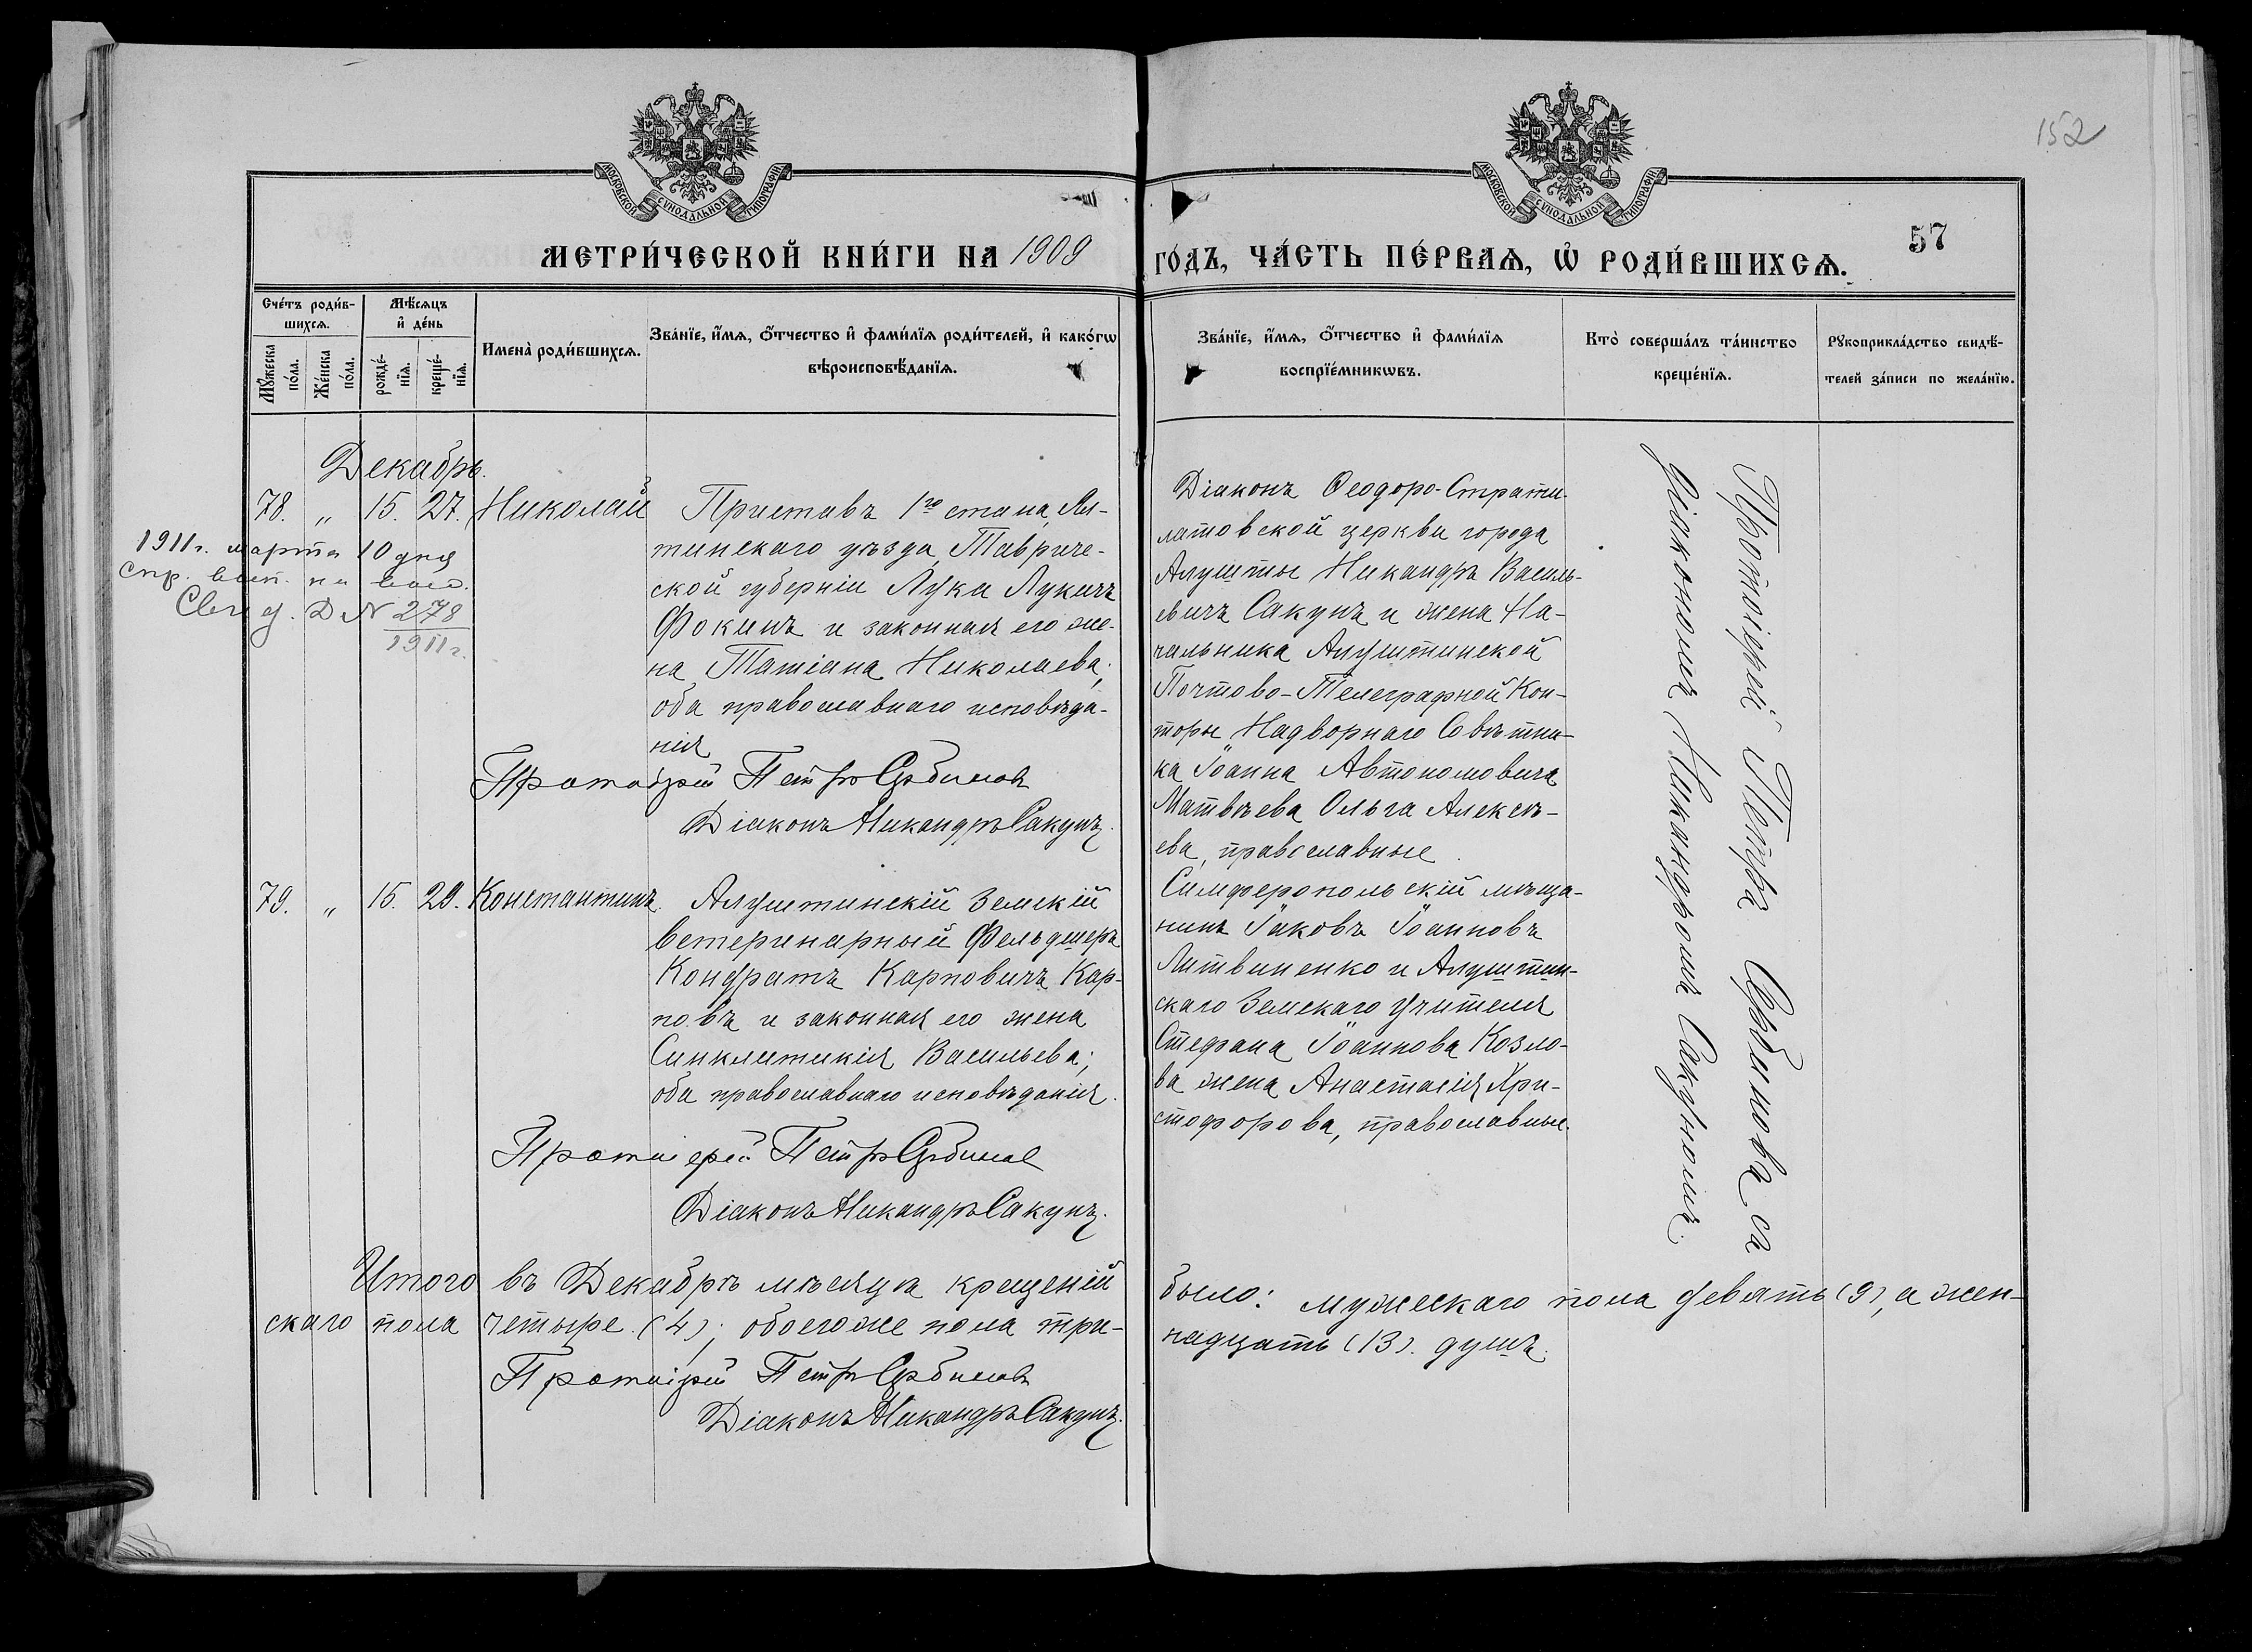 152
МОСКОВСКОЙ СУНОДАЛЬНОЙ ТИПОГРАФІИ
МОСКОВСКОЙ СУНОДАЛЬНОЙ ТИПОГРАФІИ
57
МЕТРИ́ЧЕСКОЙ КНИ́ГИ НА 1909 ГО́ДЪ, ЧА́СТЬ ПЕ́РВАѦ, Ѡ҆ РОДИ́ВШИХСѦ.
Сче́тъ роди́в-
шихсѧ.
Мꙋ́жеска по́ла.
Же́нска по́ла.
Мѣ́сѧцъ
и҆ де́нь
рожде́-
нїѧ.
креще́-
нїѧ.
Имена̀ роди́вшихсѧ.
Зва́нїе, и҆́мѧ, ѻ҆́тчество и҆ фами́лїѧ роди́телей, и҆ како́гѡ
вѣроисповѣ́данїѧ.
Зва́нїе, и҆́мѧ, ѻ҆́тчество и҆ фами́лїѧ
воспрїе́мникѡвъ.
Кто̀ соверша́лъ та́инство
креще́нїѧ.
Рꙋкоприкла́дство свидѣ́-
телей за́писи по жела́нїю.
Декабрь.
78. „ 15. 27. Николай
1911 г. марта 10 дня
Спр. на
Д N 278
1911 г.
Приставъ 1го стана, Ял-
тинскаго уѣзда, Тавриче-
ской губерніи Лука Лукичъ
Фокинъ и законная его же-
на Татіана Николаева;
оба православнаго исповѣда-
нія
Протоіерей Петръ Сербиновъ
Діаконъ Никандръ Сакунъ.
Діаконъ Ѳеодоро-Страти-
латовской церкви города
Алушты Никандръ Василь-
евичъ Сакунъ и жена На-
чальника Алуштинской
Почтово-Телеграфной Кон-
торы, Надворнаго Совѣтни-
ка Іоанна Автономовича
Матвѣева Ольга Алексѣ-
ева, православные.
79. „ 15. 29. Константинъ.
Алуштинскій Земскій
ветеринарный Фельдшеръ
Кондратъ Карповичъ Кар-
повъ и законная его жена
Синклитикія Васильева;
оба православнаго исповѣданія.
Протоіерей Петръ Сербиновъ
Діаконъ Никандръ Сакунъ.
Симферопольскій мѣща-
нинъ Іаковъ Іоанновъ
Литвиненко и Алуштин-
скаго Земскаго учителя
Стефана Іоаннова Козло-
ва жена Анастасія Хри-
стофорова, православные.
Протоіерей Петръ Сербиновъ съ
діакономъ Никандромъ Сакуномъ.
Итого въ Декабрѣ мѣсяцѣ крещеній было: мужескаго пола девять (9), а жен-
скаго пола четыре (4); обоего же пола три-надцать (13). душъ.
Протоіерей Петръ Сербиновъ
Діаконъ Никандръ Сакунъ.